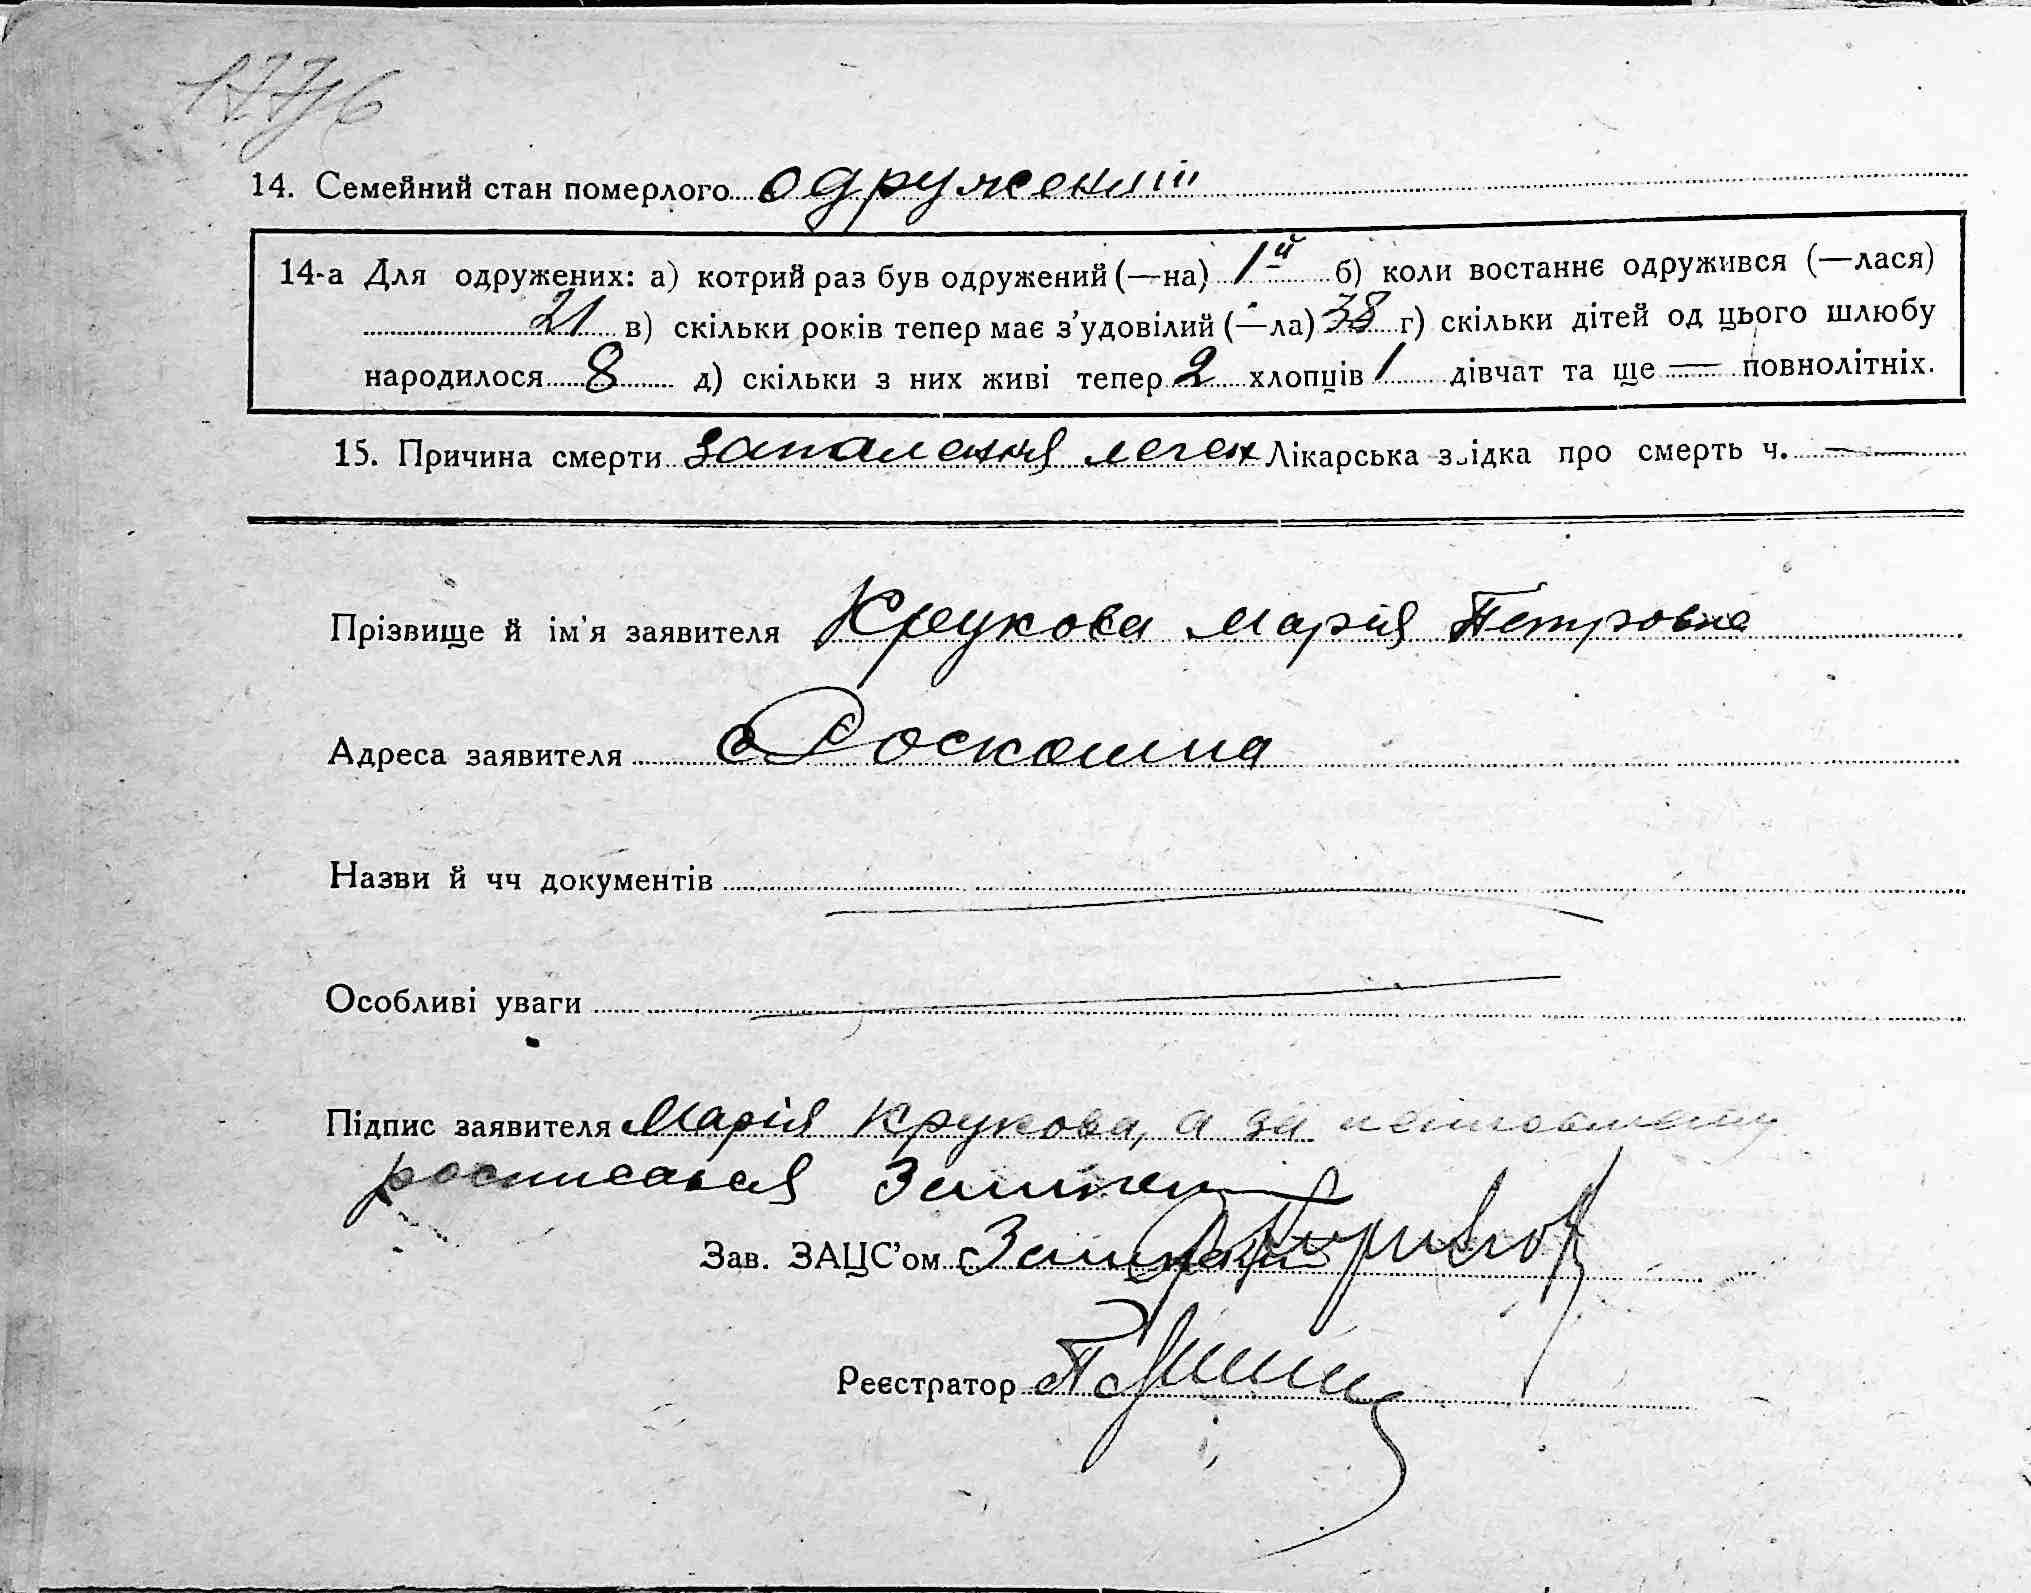 1776
14. Семейний стан померлого одружений
14-а Для одружених: а) котрий раз був одружений (—на) 1й б) коли востаннє одружився (—лася)
21 в) скільки років тепер має з’удовілий (—ла) 38 г) скільки дітей од цього шлюбу
народилося 8 д) скільки з них живі тепер 2 хлопців 1 дівчат та ще — повнолітніх.
15. Причина смерти запалення леген Лікарська звідка про смерть ч. —
Прізвище й ім’я заявителя Крукова Марія Петровна
Адреса заявителя с Роскошна
Назви й чч документів
Особливі уваги
Підпис заявителя Марія Крукова, а за неписьменну
росписався
Зав. ЗАЦС’ом
Реєстратор